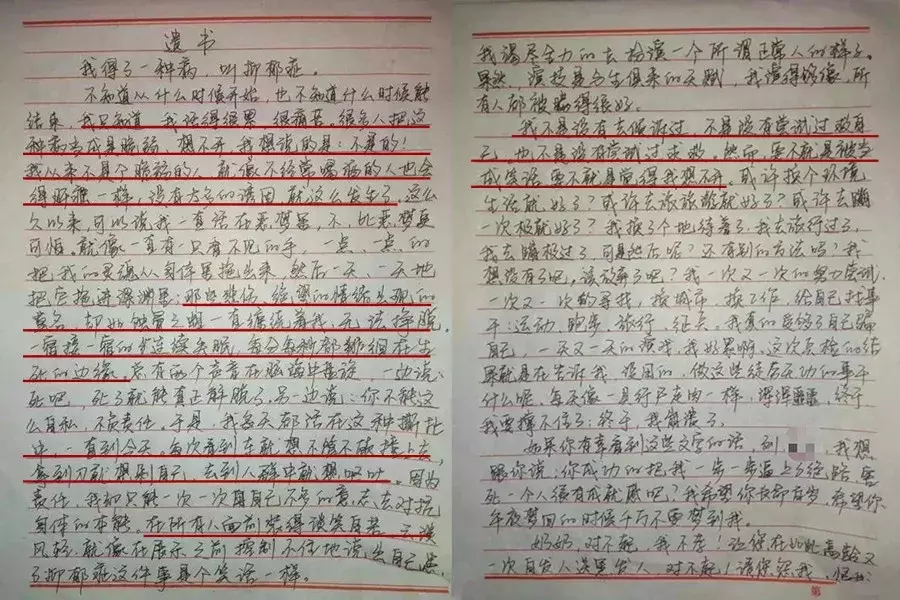 遗书
我得了一种病，叫抑郁症。
不知道从什么时候开始，也不知道什么时候能
结束，我只知道，我活得很累，很痛苦。很多人把这
种病当成是脆弱，想不开，我想说的是：不是的！
我从来不是个脆弱的人，就像不经常喝酒的人也会
得肝癌一样，没有太多的诱因，就这么发生了。这么
久以来，可以说我一直活在恶梦里，不，比恶梦更
可怕，就像一直有一只看不见的手，一点、一点的
把我的灵魂从身体里拖出来，然后一天、一天地
把它拖进深渊里；那些悲伤、绝望的情绪出现的
莫名，却如蚀骨之蛆一直缠绕着我，无法挣脱。
一宿接一宿的连续失眠，每分每秒都徘徊在生
死的边缘。总有两个声音在脑海中撞诡，一边说：
死吧，死了就能真正解脱了；另一边说：你不能这
么自私，不负责任。于是，我每天都活在这种撕扯
中，一直到今天。每次看到车就想不惜不破撞上去，
拿到刀就想割自己，去到人群中就想呕吐。因为
责任，我却只能一次一次用自己不多的意志去对抗
身体的本能。在所有人面前装得谈笑自若、云淡
风轻，就像在展示之前控制不住地说出自己患
了抑郁症这件事是个笑话一样。
我竭尽全力的去扮演一个所谓正常人的样子。
果然，演技是与生俱来的天赋，我演得够像，所
有人都被骗得很好。
我不是没有去倾诉过，不是没有尝试过救自
己，也不是没有尝试过求救。然而，要不就是被当
成笑话，要不就是觉得我想不开。或许换个环境
生活就好了？或许去旅旅游就好了？或许去蹦
一次极就好了？我换了个地待着了，我去旅行过了，
我去蹦极过了，可是然后呢？还有别的方法吗？我
想没有了吧，该放弃了吧？我一次又一次的努力尝试，
一次又一次的寻找，换城市、换工作，给自己找事
干：运动、跑步、旅行、征兵。我真的受够了自己骗
自己，一天又一天的演戏，我好累啊，这次系检的结
果就是在告诉我，没用的，做这些徒劳无功的事干
什么呢，每天像一具行尸走肉一样，浑浑噩噩，终于
我要撑不住了；终于，我崩溃了。
如果你有幸看到这些文字的话，列，我想
跟你说：你成功的把我一步一步逼上了绝路，害
死一个人很有成就感吧？我希望你长命百岁，希望你
午夜梦回的时候千万不要梦到我。
奶奶，对不起，我不孝！让您在如此高龄又
一次白发人送黑发人，对不起！请您怨我、
第